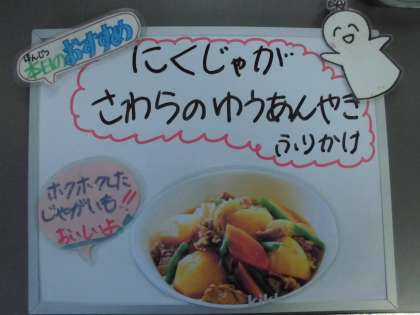 ほんじつ
本日のおすすめ
にくじゃが
さわらのゆうあんやき
ふりかけ
ホクホクした
じゃがいも!!
おいしいよ